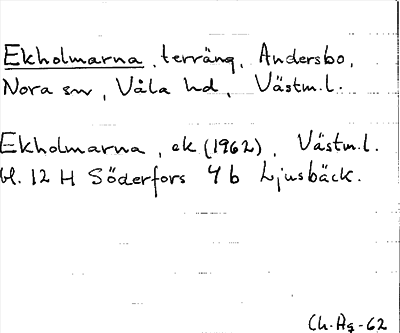 Ekholmarna, terräng, Andersbo,
Nora sn, Våla hd, Västm.l.
Ekholmarna, ek (1962), Västm.l.
bl. 12 H Söderfors 4 b Ljusbäck.
Ch. Hg -62